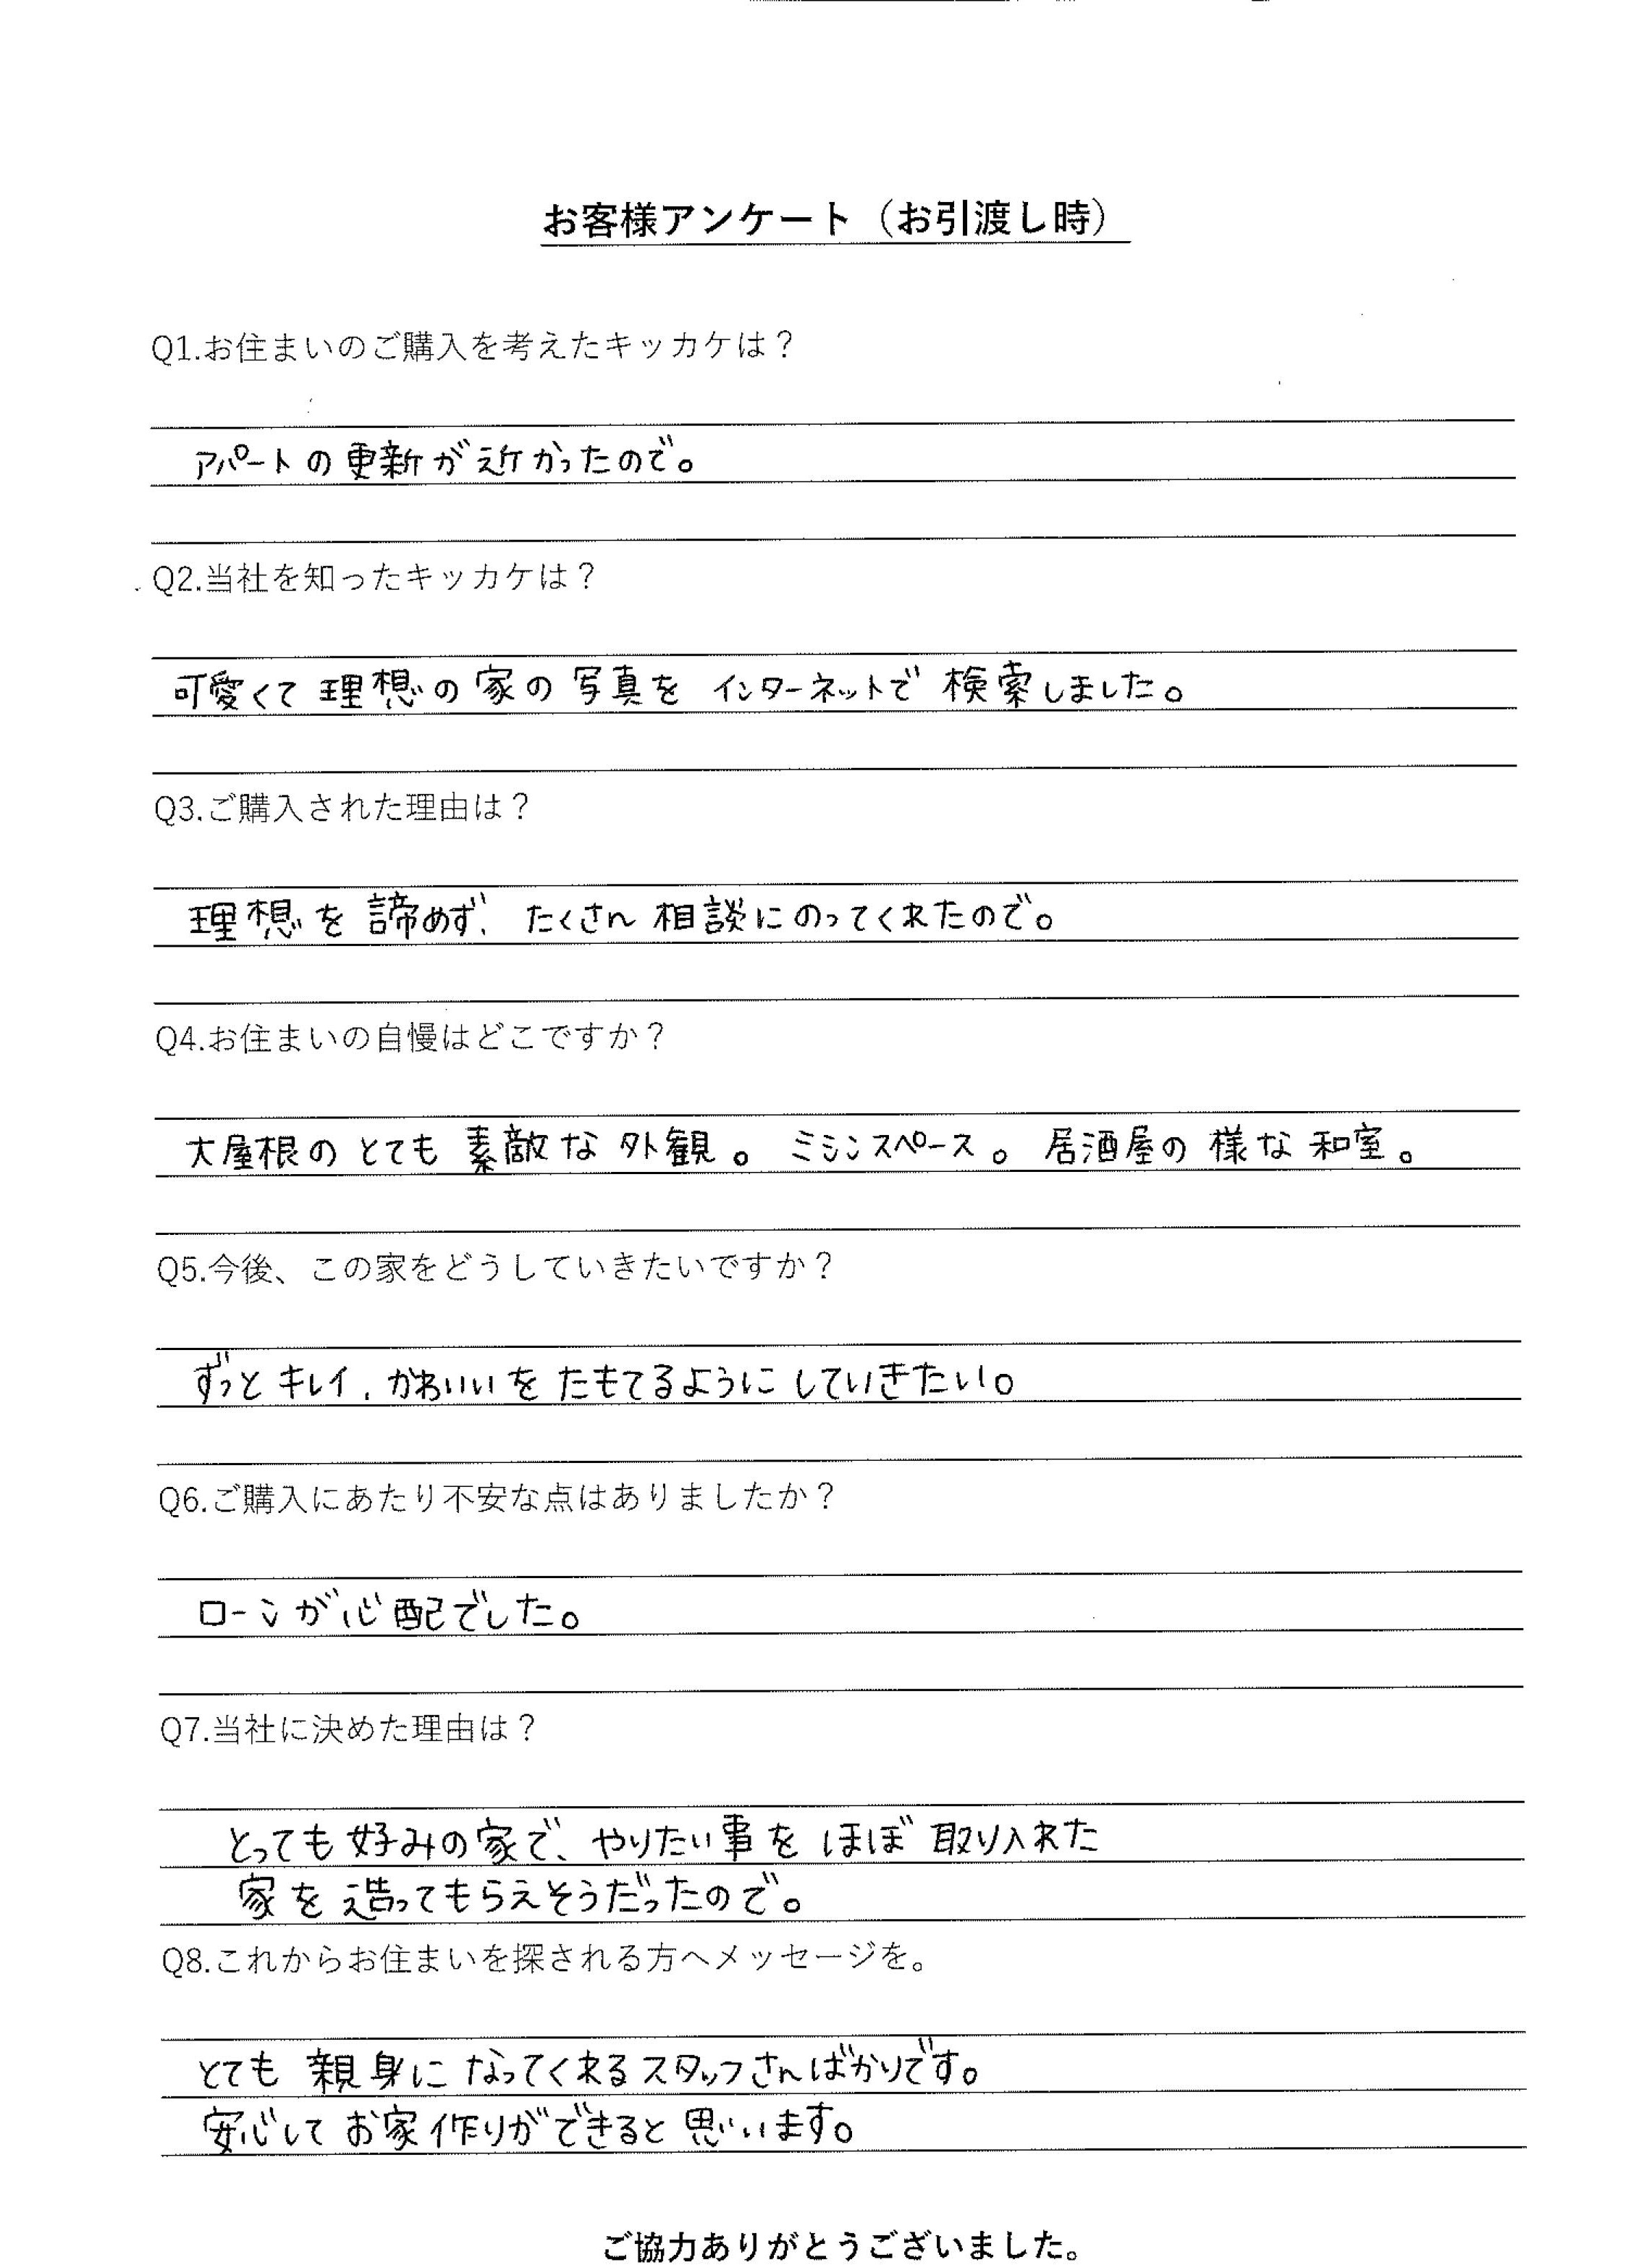 お客様アンケート（お引渡し時）
Q1.お住まいのご購入を考えたキッカケは？
アパートの更新が近かったので。
Q2.当社を知ったキッカケは？
可愛くて理想の家の写真をインターネットで検索しました。
Q3.ご購入された理由は？
理想を諦めず、たくさん相談にのってくれたので。
Q4.お住まいの自慢はどこですか？
大屋根のとても素敵な外観。ミシンスペース。居酒屋の様な和室。
Q5.今後、この家をどうしていきたいですか？
ずっとキレイ、かわいいをたもてるようにしていきたい。
Q6.ご購入にあたり不安な点はありましたか？
ローンが心配でした。
Q7.当社に決めた理由は？
とっても好みの家で、やりたい事をほぼ取り入れた
家を造ってもらえそうだったので。
Q8.これからお住まいを探される方へメッセージを。
とても親身になってくれるスタッフさんばかりです。
安心してお家作りができると思います。
ご協力ありがとうございました。